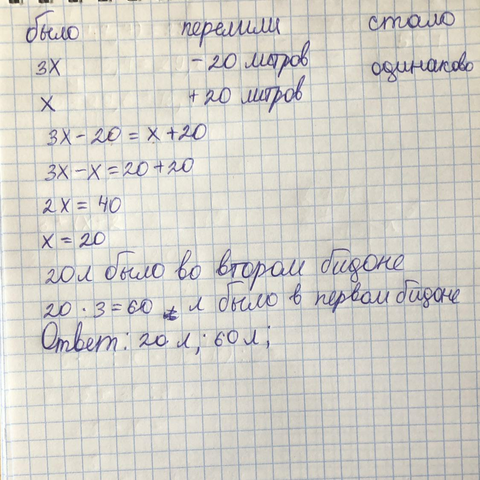 было перелили стало
3х - 20 литров одинаково
х + 20 литров
3х - 20 = х + 20
3х - х = 20 + 20
2х = 40
х = 20
20л было во втором бидоне
20 · 3 = 60 л было в первом бидоне
Ответ: 20 л; 60 л;